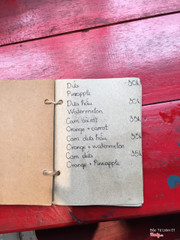 Dứa 30k
Pineapple
Dưa hấu 30k
Watermelon
Cam cà rốt 35k
Orange + carrot
Cam dưa hấu 35k
Orange + watermelon
Cam dứa 35k
Orange + Pineapple